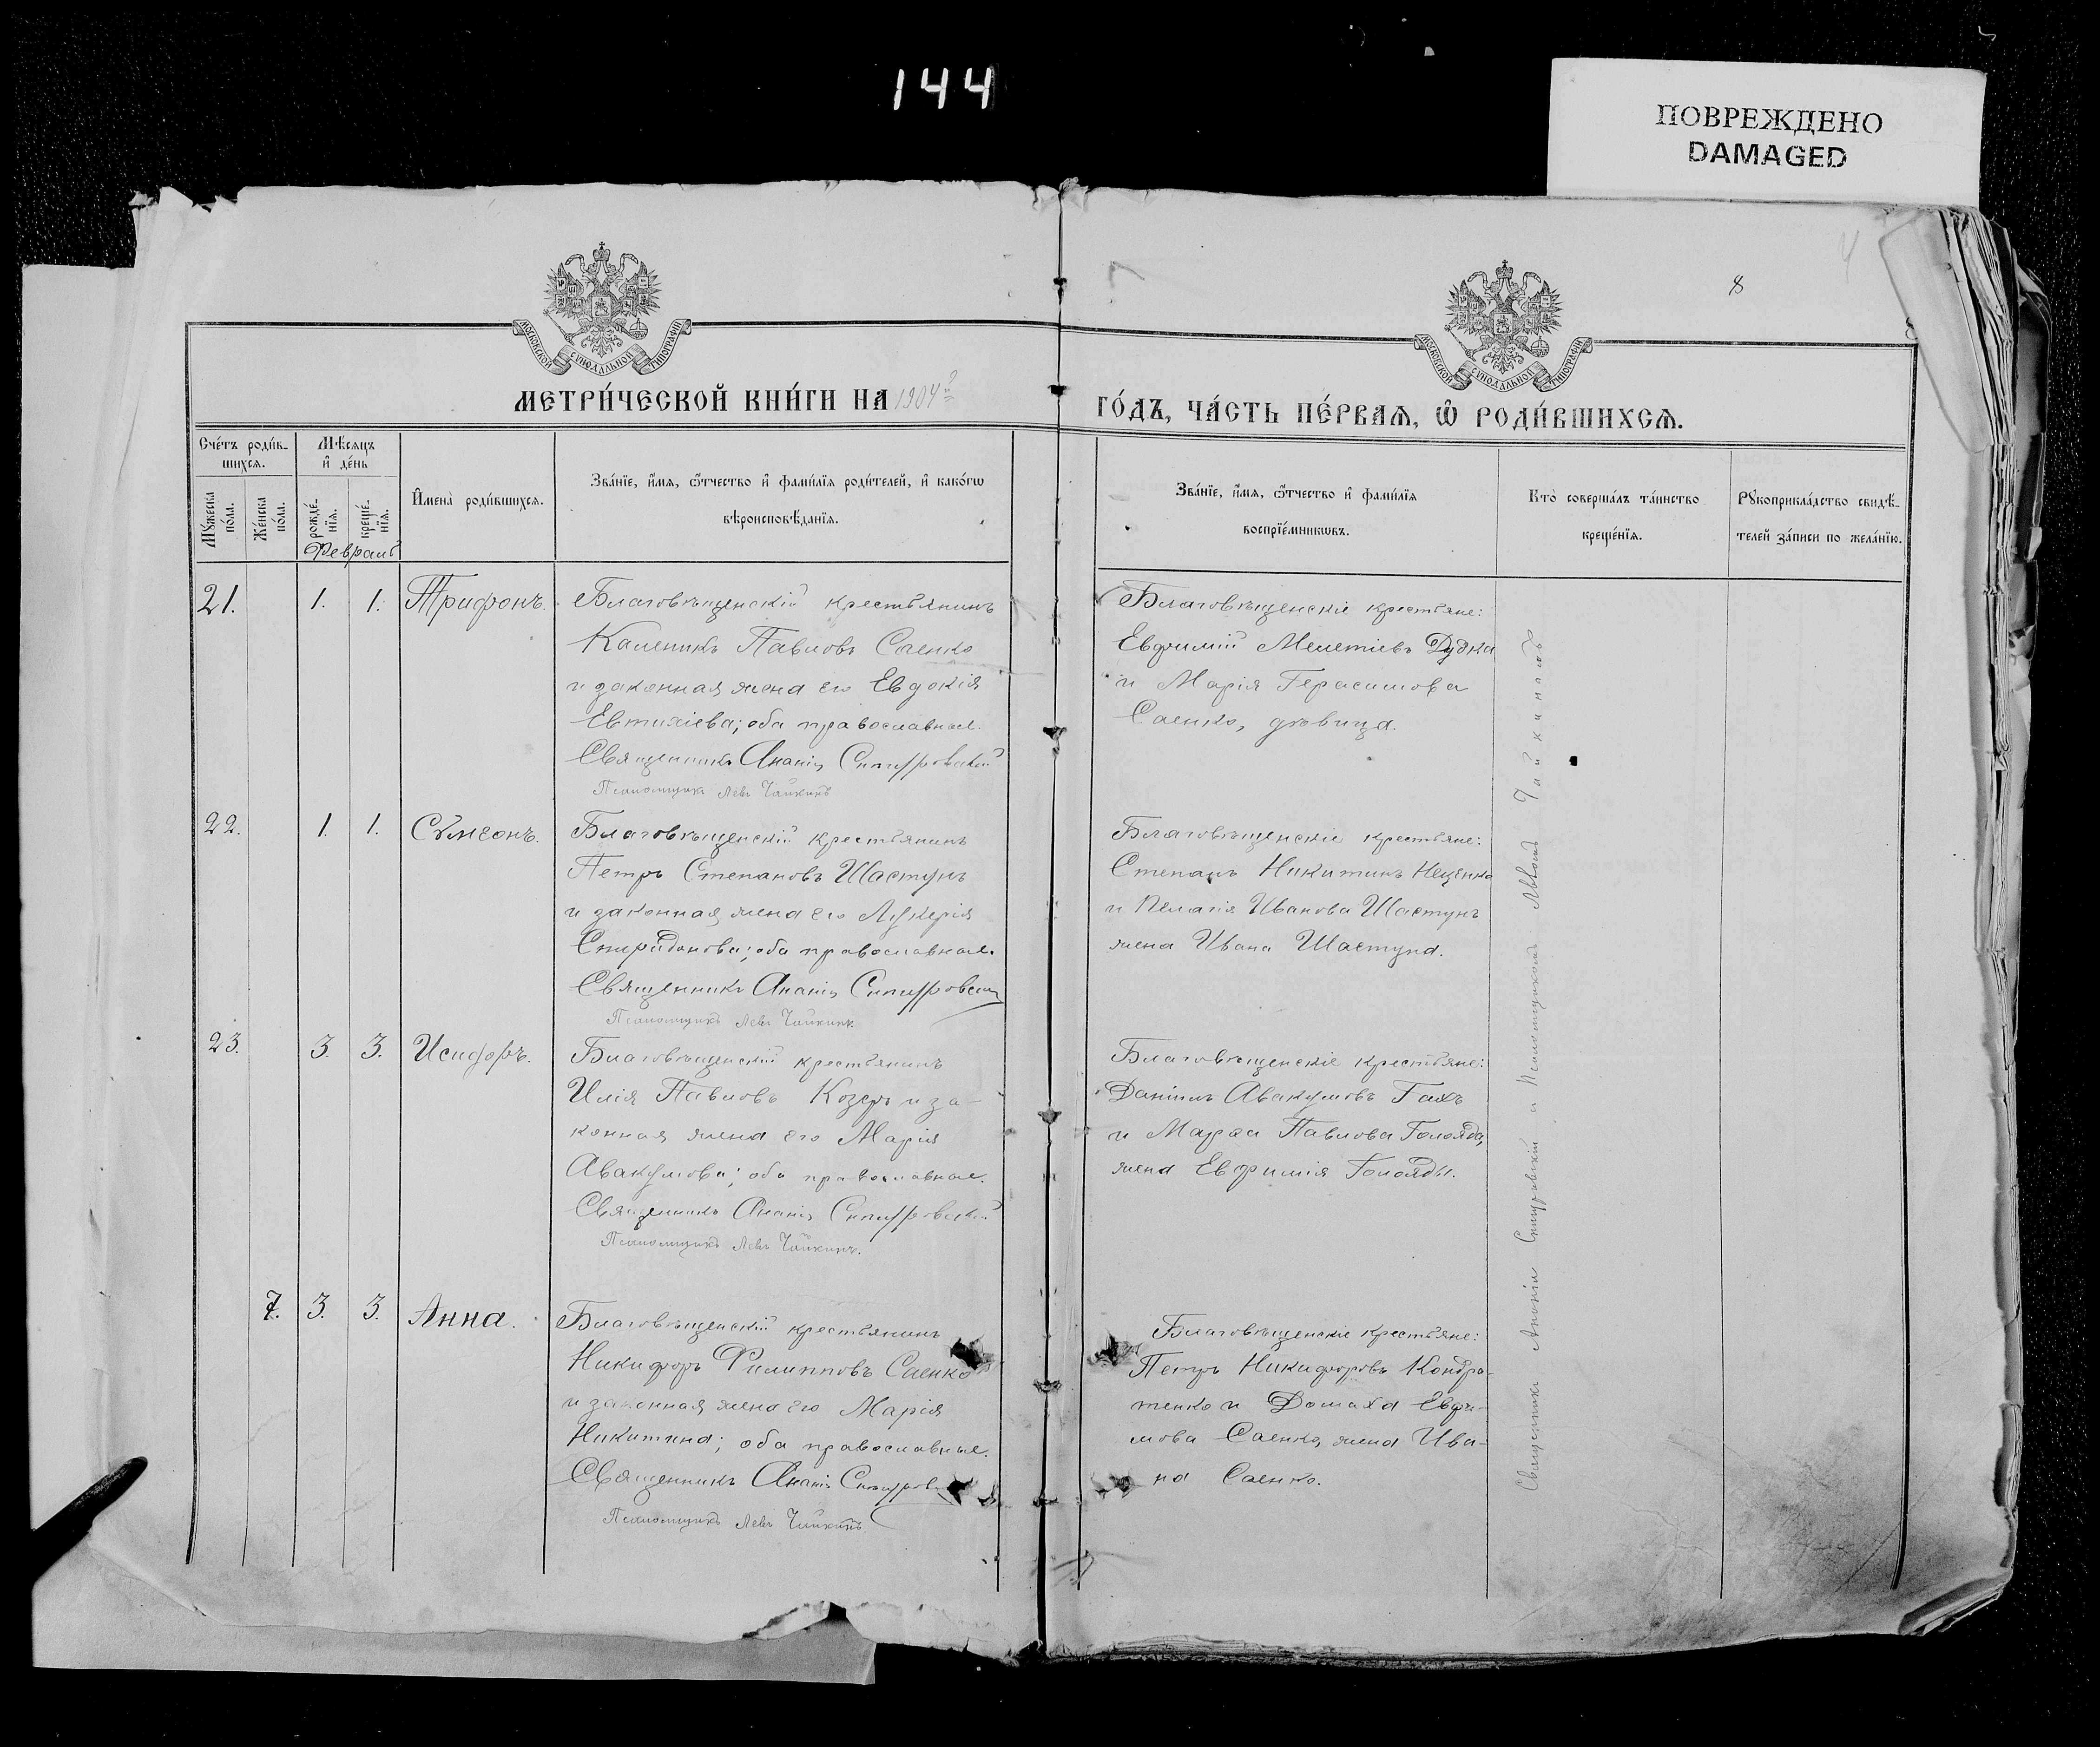 144
ПОВРЕЖДЕНО
DAMAGED
8
МОСКОВСКОЙ СѴНОДАЛЬНОЙ ТИПОГРАФІИ
МОСКОВСКОЙ СѴНОДАЛЬНОЙ ТИПОГРАФІИ
МЕТРИ́ЧЕСКОЙ КНИ́ГИ НА 1904й
ГО́ДЪ, ЧА́СТЬ ПЕ́РВАѦ, Ѽ РОДИ́ВШИХСѦ.
Сче́тъ роди́в-
шихсѧ.
Мѣ́сѧцъ
и҆ де́нь
Мꙋ́жеска
по́ла.
Же́нска
по́ла.
рожде́-
нїѧ.
креще́-
нїѧ.
И҆мена̀ роди́вшихсѧ.
Зва́нїе, и҆́мѧ, ѻ҆́тчество и҆ фами́лїѧ роди́телей, и҆ како́гѡ
вѣроисповѣ́данїѧ.
Зва́нїе, и҆́мѧ, ѻ҆́тчество и҆ фами́лїѧ
воспрїе́мникѡвъ.
Кто̀ соверша́лъ та́инство
креще́нїѧ.
Рꙋкоприкла́дство свидѣ́-
телей за́писи по жела́нїю.
Февраль
21. 1. 1. Трифонъ.
Благовѣщенскій крестьянинъ
Каленикъ Павловъ Саенко
и законная жена его Евдокія
Евтихіева; оба православные.
Священникъ Ананія
Псаломщикъ Левъ Чайкинъ
Благовѣщенскіе крестьяне:
Евфимій Мелетіевъ Дудка
и Марія Герасимова
Саенко, дѣвица.
22. 1. 1. Сѵмеонъ.
Благовѣщенскій крестьянинъ
Петръ Степановъ Шастунъ
и законная жена его Лукерія
Спиридонова; оба православные.
Священникъ Ананія
Псаломщикъ Левъ Чайкинъ
Благовѣщенскіе крестьяне:
Степанъ Никитинъ Нещенко
и Пелагія Иванова Шастунъ
жена Ивана Шастуна.
23. 3. 3. Исидоръ.
Благовѣщенскій крестьянинъ
Илія Павловъ Козеръ и за-
конная жена его Марія
Авакумова; оба православные.
Священникъ Ананія
Псаломщикъ Левъ Чайкинъ.
Благовѣщенскіе крестьяне:
Даніилъ Авакумовъ Гахъ
и Марѳа Павлова Голояда,
жена Евфимія Голояды.
7. 3. 3. Анна.
Благовѣщенскій крестьянинъ
Никифоръ Филипповъ Саенко
и законная жена его Марія
Никитина; оба православные.
Священникъ Ананія
Псаломщикъ Левъ Чайкинъ.
Благовѣщенскіе крестьяне:
Петръ Никифоровъ Кондра-
тенко и Домаха Евфи-
мова Саенко, жена Ива-
на Саенко.
Священникъ Ананія и Псаломщикомъ Львомъ Чайкинымъ